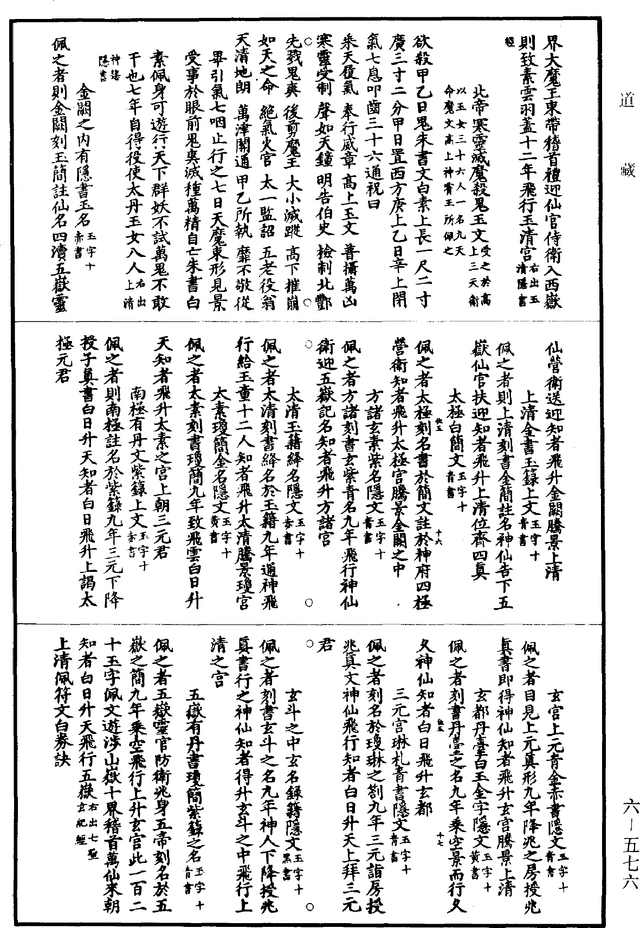 道藏
界大魔王束帶稽首禮迎仙官侍衛入西嶽
則致素雲羽蓋十二年飛行玉清宮右出五清隱書經
北帝寒靈滅魔殺鬼玉文受之於高上三天衛
以玉女三十六人一名九天
命魔文高上神霄王所佩之
欲殺甲乙日鬼朱書文白素上長一尺二寸
廣三寸二分甲日置西方庚上乙日辛上閉
氣七息叩齒三十六通祝曰
乘天履氣 奉行威章 高上玉文 普攝萬凶
寒靈受制 聲如天鐘 明告伯史 檢制北酆
先戮鬼爽 後剪魔王 大小滅蹤 高下摧崩
如天之命 絕氣火官 太一監詔 五老役翁
天清地朗 萬津開通 甲乙所執 靡不敬從
畢引氣七咽止行之七日天魔束形見景
受事於眼前鬼爽滅種萬精自亡朱書白
素佩身可遊行天下群妖不試萬鬼不敢
干也七年自得役使太丹玉女八人右出上清神諸隱書
金闕之內有隱書玉名玉字十赤書
佩之者則金闕刻玉簡註仙名四瀆五嶽靈
仙營衛送迎知者飛升金闕騰景上清
上清金書玉錄上文玉字十青書
佩之者則上清刻書金簡註名神仙告下五
嶽仙官扶迎知者飛升上清位齊四真
太極白簡文玉字十青書
佩之者太極刻名書於簡文註於神府四極
營衛知者飛升太極宮騰景金闕之中
方諸玄素紫名隱文玉字十青書
佩之者方諸刻書玄紫青名九年飛行神仙
衛迎五嶽記名知者飛升方諸宮
太清玉籍絳名隱文玉字十赤書
佩之者太清刻書絳名於玉籍九年通神飛
行給玉童十二人知者飛升太清騰景瓊宮
太素瓊簡金名隱文玉字十黃書
佩之者太素刻書瓊簡九年致飛雲白日升
天知者飛升太素之宮上朝三元君
南極有丹文紫籙上文玉字十赤書
佩之者則南極註名於紫籙九年三元下降
授子真書白日升天知者白日飛升上謁太
極元君
玄宮上元青金赤書隱文玉字十青書
佩之者目見上元真形九年降兆之房授兆
真書即得神仙知者飛升玄宮騰景上清
玄都丹臺白玉金字隱文玉字十黃書
佩之者刻書丹臺之名九年乘空景而行久
久神仙知者白日飛升玄都
三元宮琳札青書隱文玉字十青書
佩之者刻名於瓊琳之劄九年三元詣房授
兆真文神仙飛行知者白日升天上拜三元
君
玄斗之中玄名錄籍隱文玉字十黑書
佩之者刻書玄斗之名九年神人下降授兆
真書行之神仙知者得升玄斗之中飛行上
清之宮
五嶽有丹書瓊簡紫籙之名玉字十青書
佩之者五嶽靈官防衛兆身五帝刻名於五
嶽之簡九年乘空飛行上升玄宮此一百二
十玉字佩文遊涉山嶽十界稽首萬仙來朝
知者白日升天飛行五嶽右出七聖玄紀經
上清佩符文白券訣
六－五七六